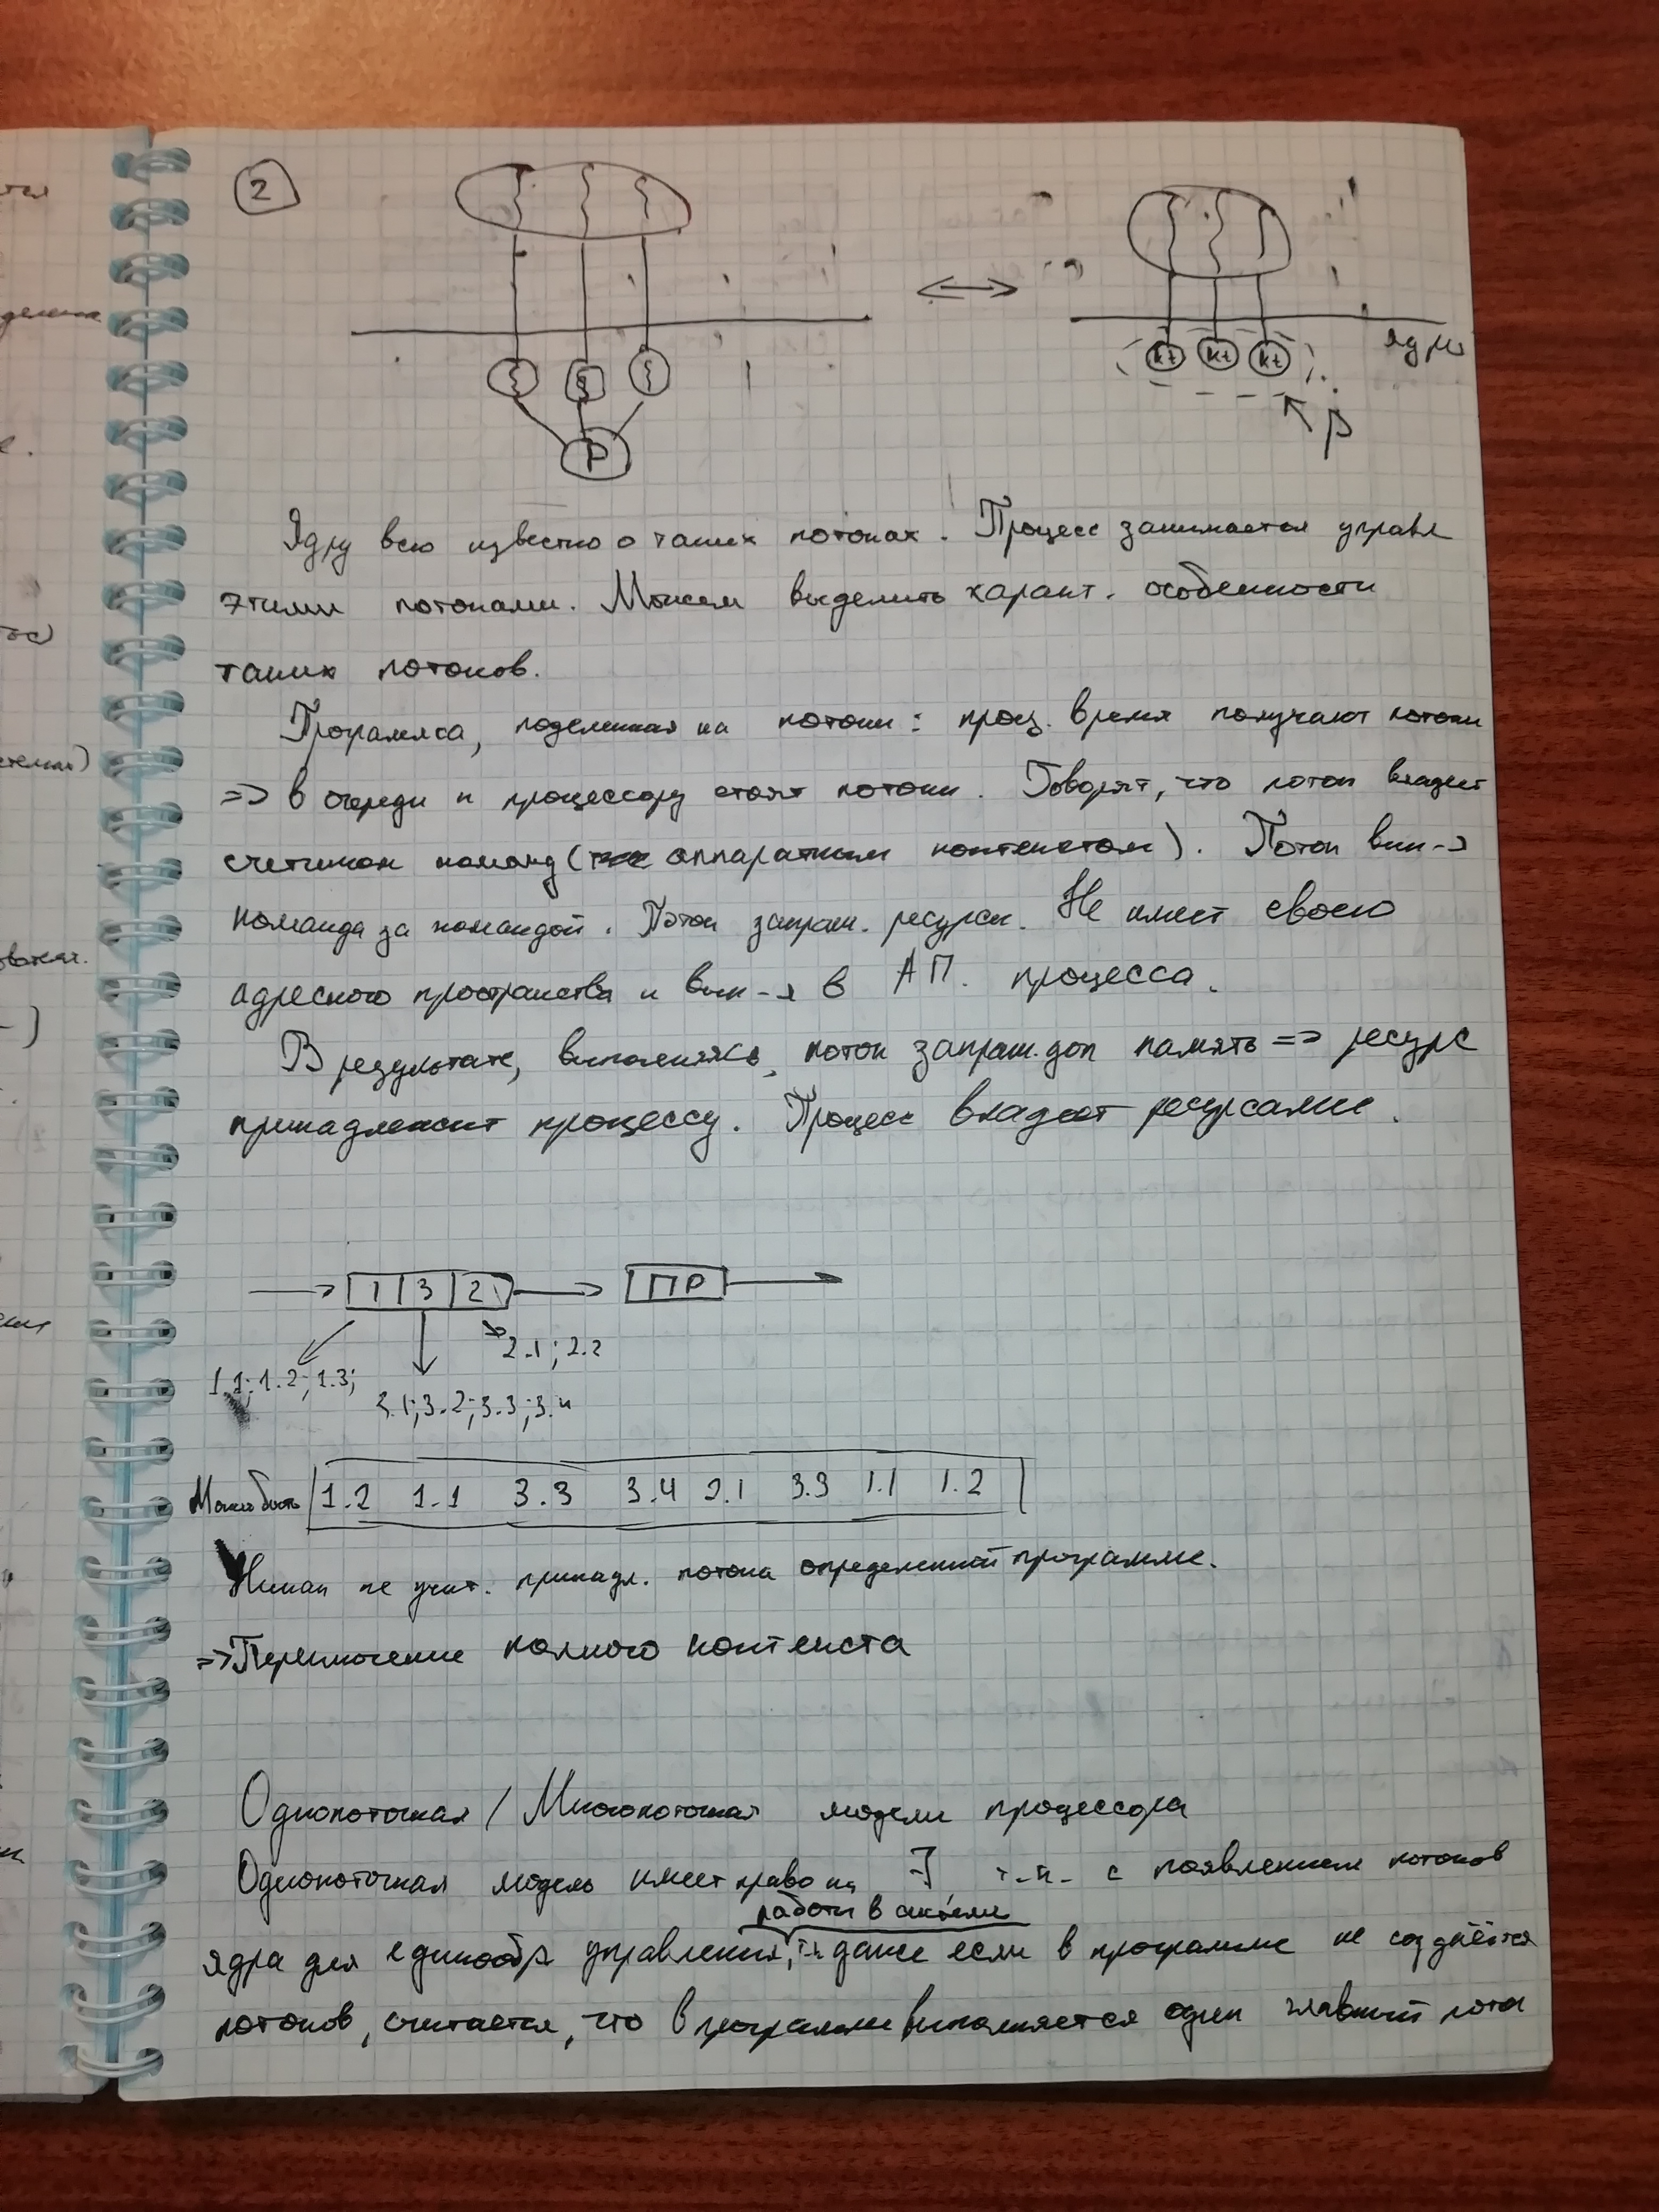 2
ядро
kt kt kt
P
P
Ядру всё известно о таких потоках. Процесс занимается управл
этими потоками. Можем выделить характ. особенности
таких потоков.
Программа, поделенная на потоки: проц. время получают потоки
=> в очереди к процессору стоят потоки. Говорят, что поток владеет
счетчиком команд (аппаратным контекстом). Поток вып-я
команда за командой. Поток запраш. ресурсы. Не имеет своего
адресного пространства и вып-я в АП. процесса.
В результате, выполняясь, поток запраш. доп память => ресурс
принадлежит процессу. Процесс владеет ресурсами.
1 3 2 ПР
2.1; 2.2
1.1; 1.2; 1.3;
3.1; 3.2; 3.3; 3.4
Может быть 1.2 1.1 3.3 3.4 2.1 3.3 1.1 1.2
Никак не учит. принадл. потока определенной программе.
=> Переключение полного контекста
Однопоточная / Многопоточная модели процессора
Однопоточная модель имеет право на ∃ т.к. с появлением потоков
работы в системе
ядра для единообр управления, даже если в программе не создаётся
потоков, считается, что в программе выполняется один главный поток